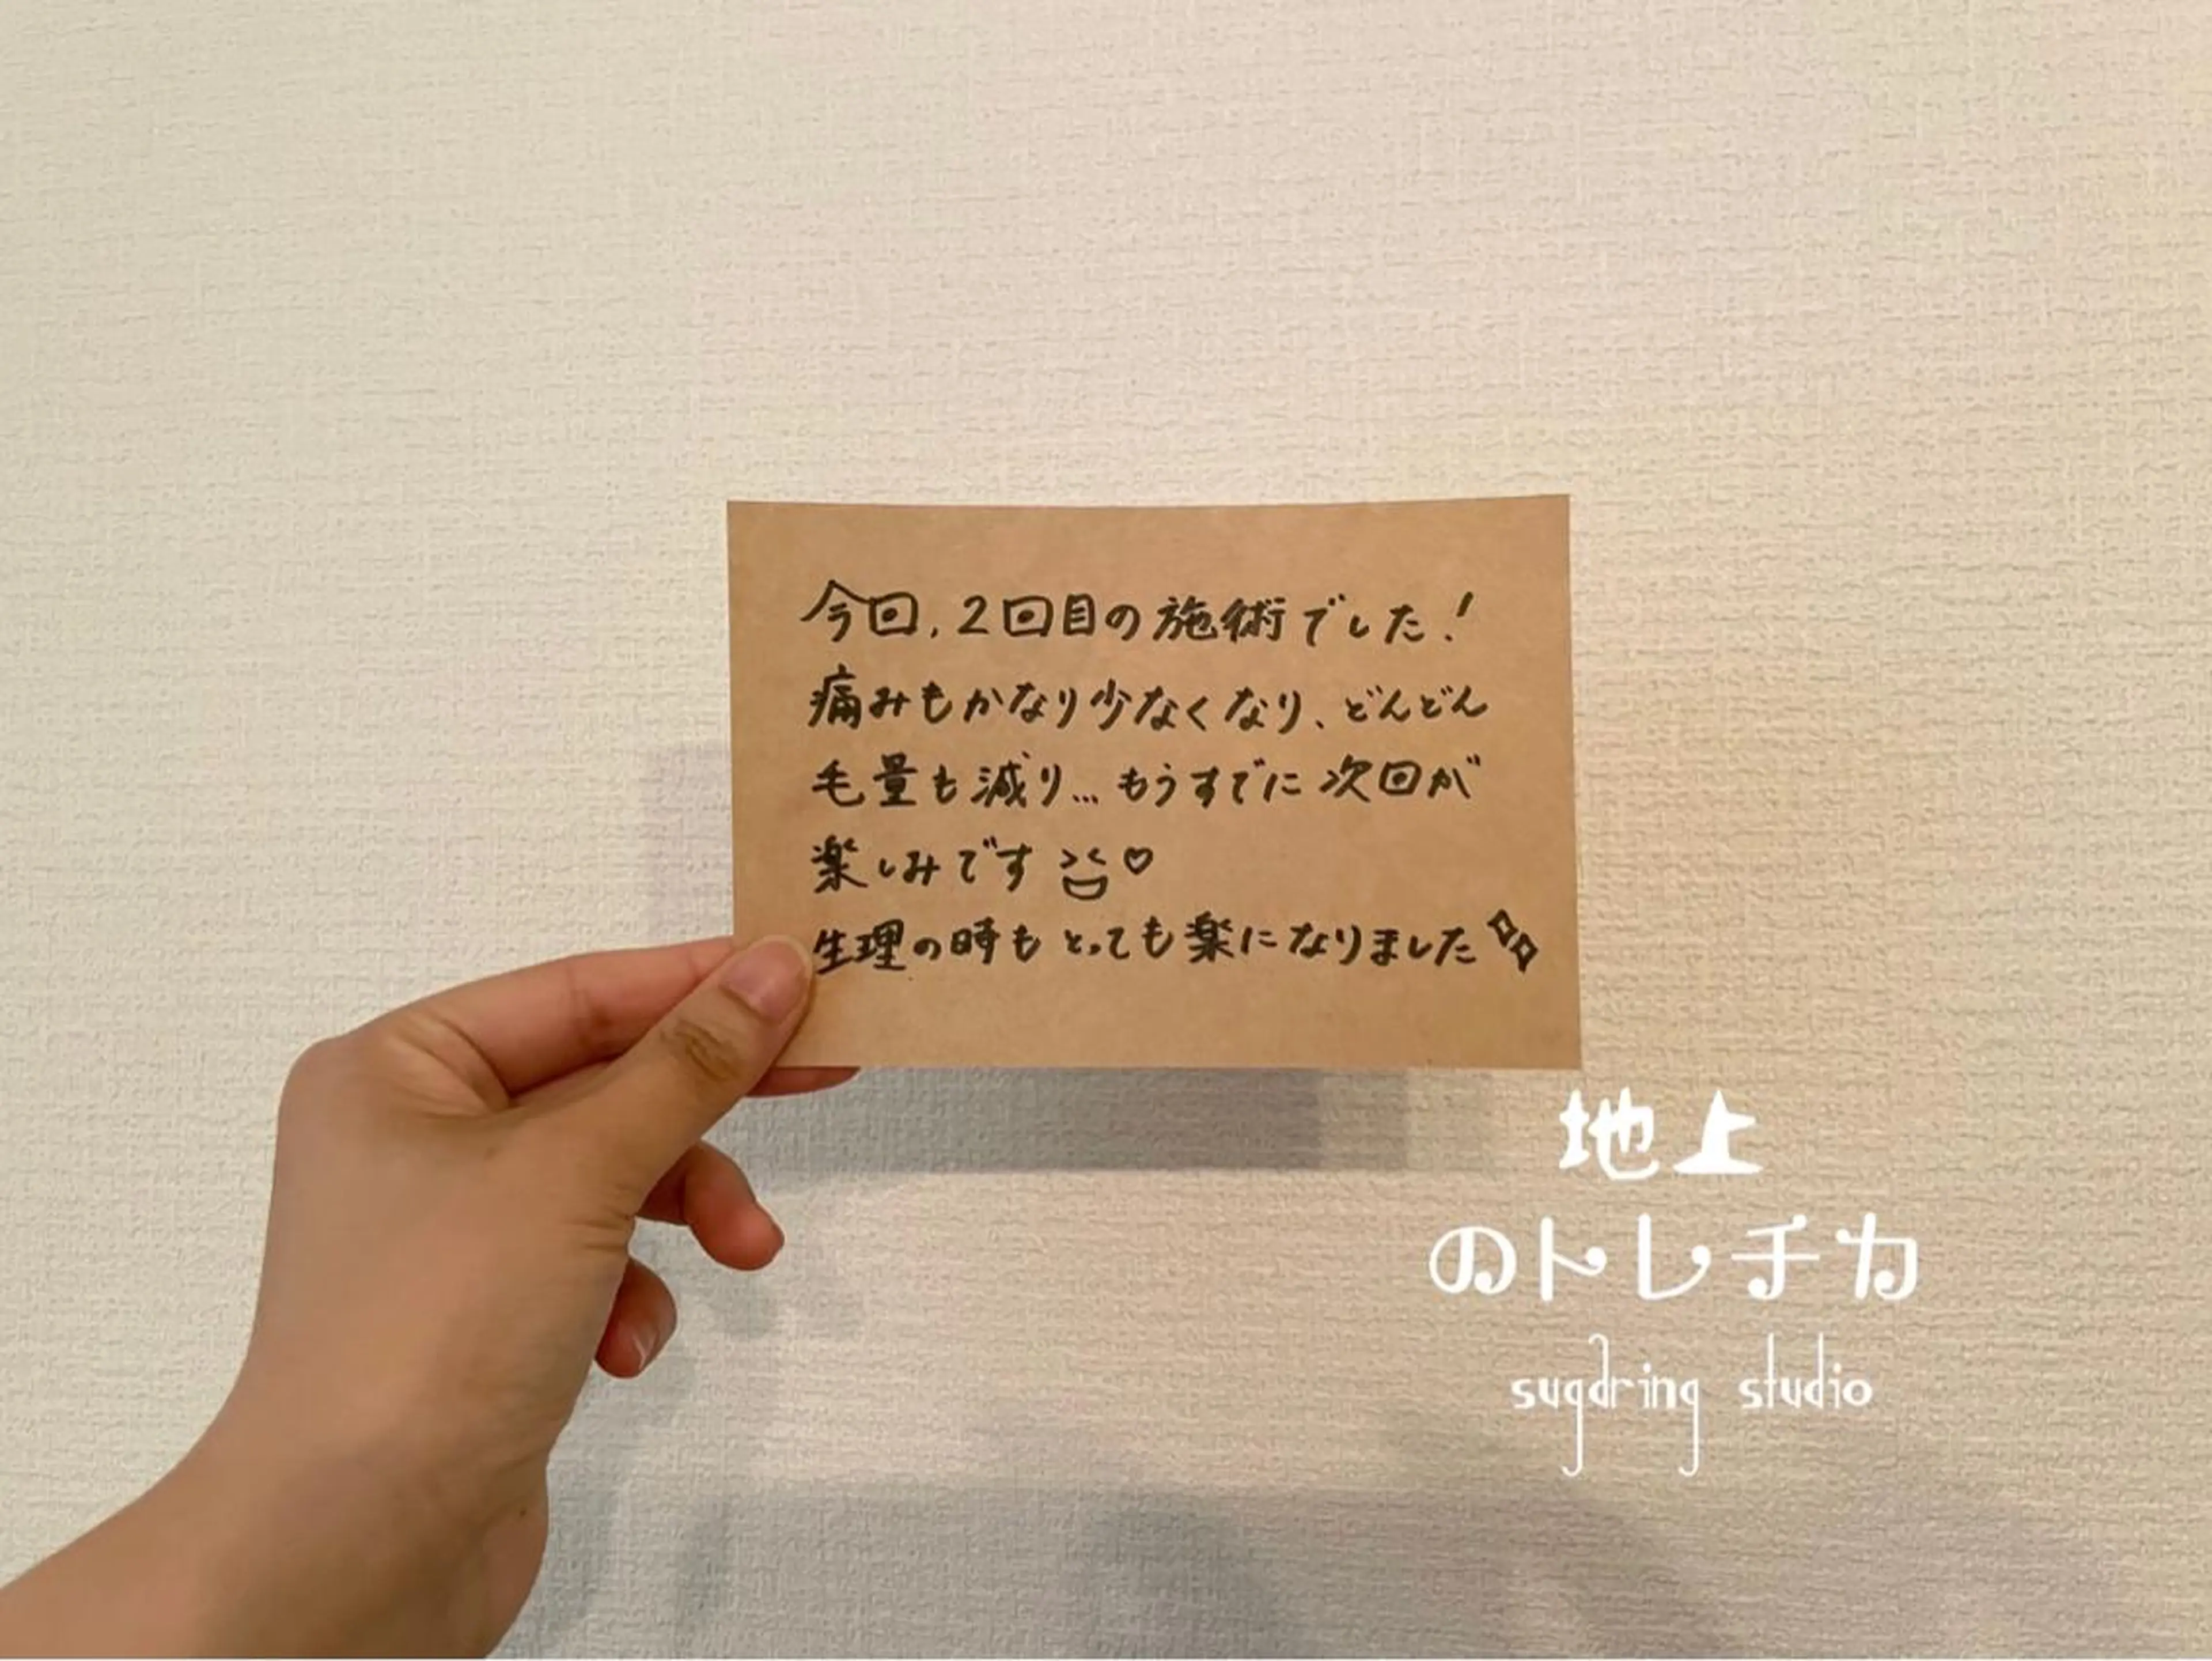 今回,2回目の施術でした!
痛みもかなり少なくなり、どんどん
毛量も減り…もうすでに次回が
楽しみです♡
生理の時もとっても楽になりました
地上
のトレチカ
sugaring studio